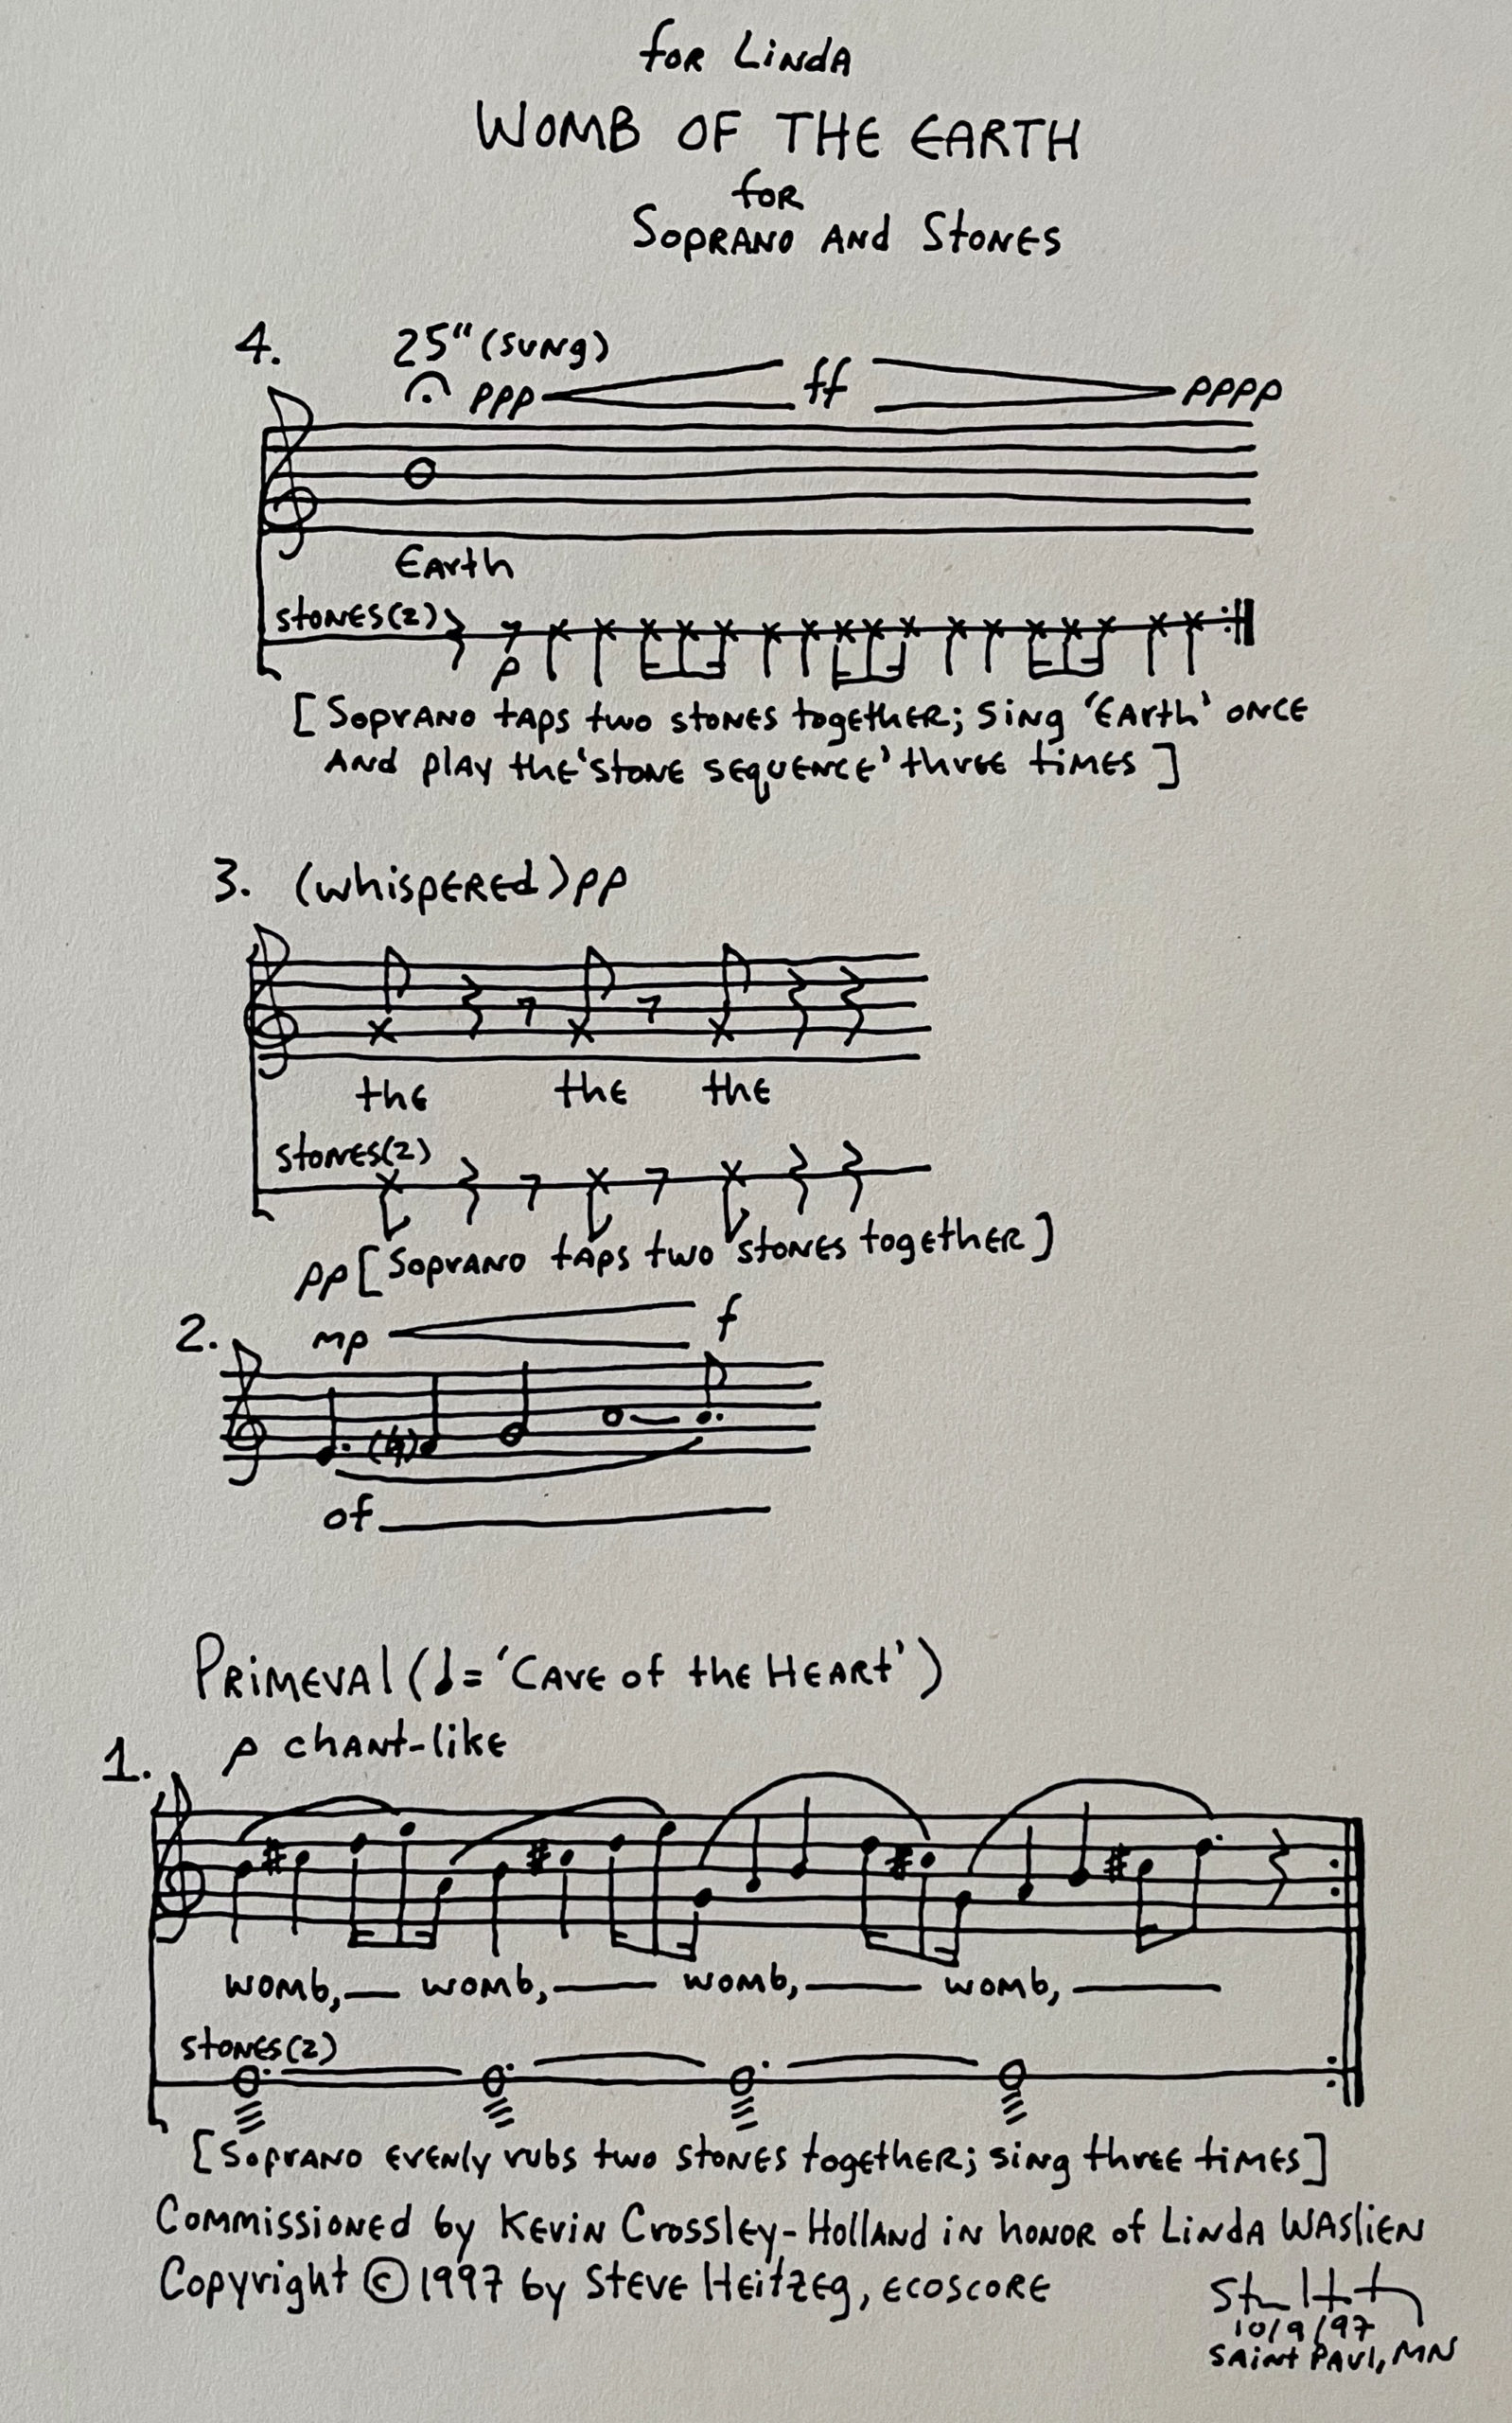 for Linda
WOMB OF THE EARTH
for
Soprano and Stones
4. 25" (sung)
ppp ff pppp
Earth
stones(2)
p
[Soprano taps two stones together; sing 'Earth' once
and play the 'stone sequence' three times]
3. (whispered) pp
the the the
stones(2)
pp [Soprano taps two stones together]
2. mp f
of
Primeval (♩= 'Cave of the Heart')
1. p chant-like
womb, womb, womb, womb,
stones(2)
[Soprano evenly rubs two stones together; sing three times]
Commissioned by Kevin Crossley-Holland in honor of Linda Waslien
Copyright © 1997 by Steve Heitzeg, ecoscore
10/9/97
Saint Paul, MN